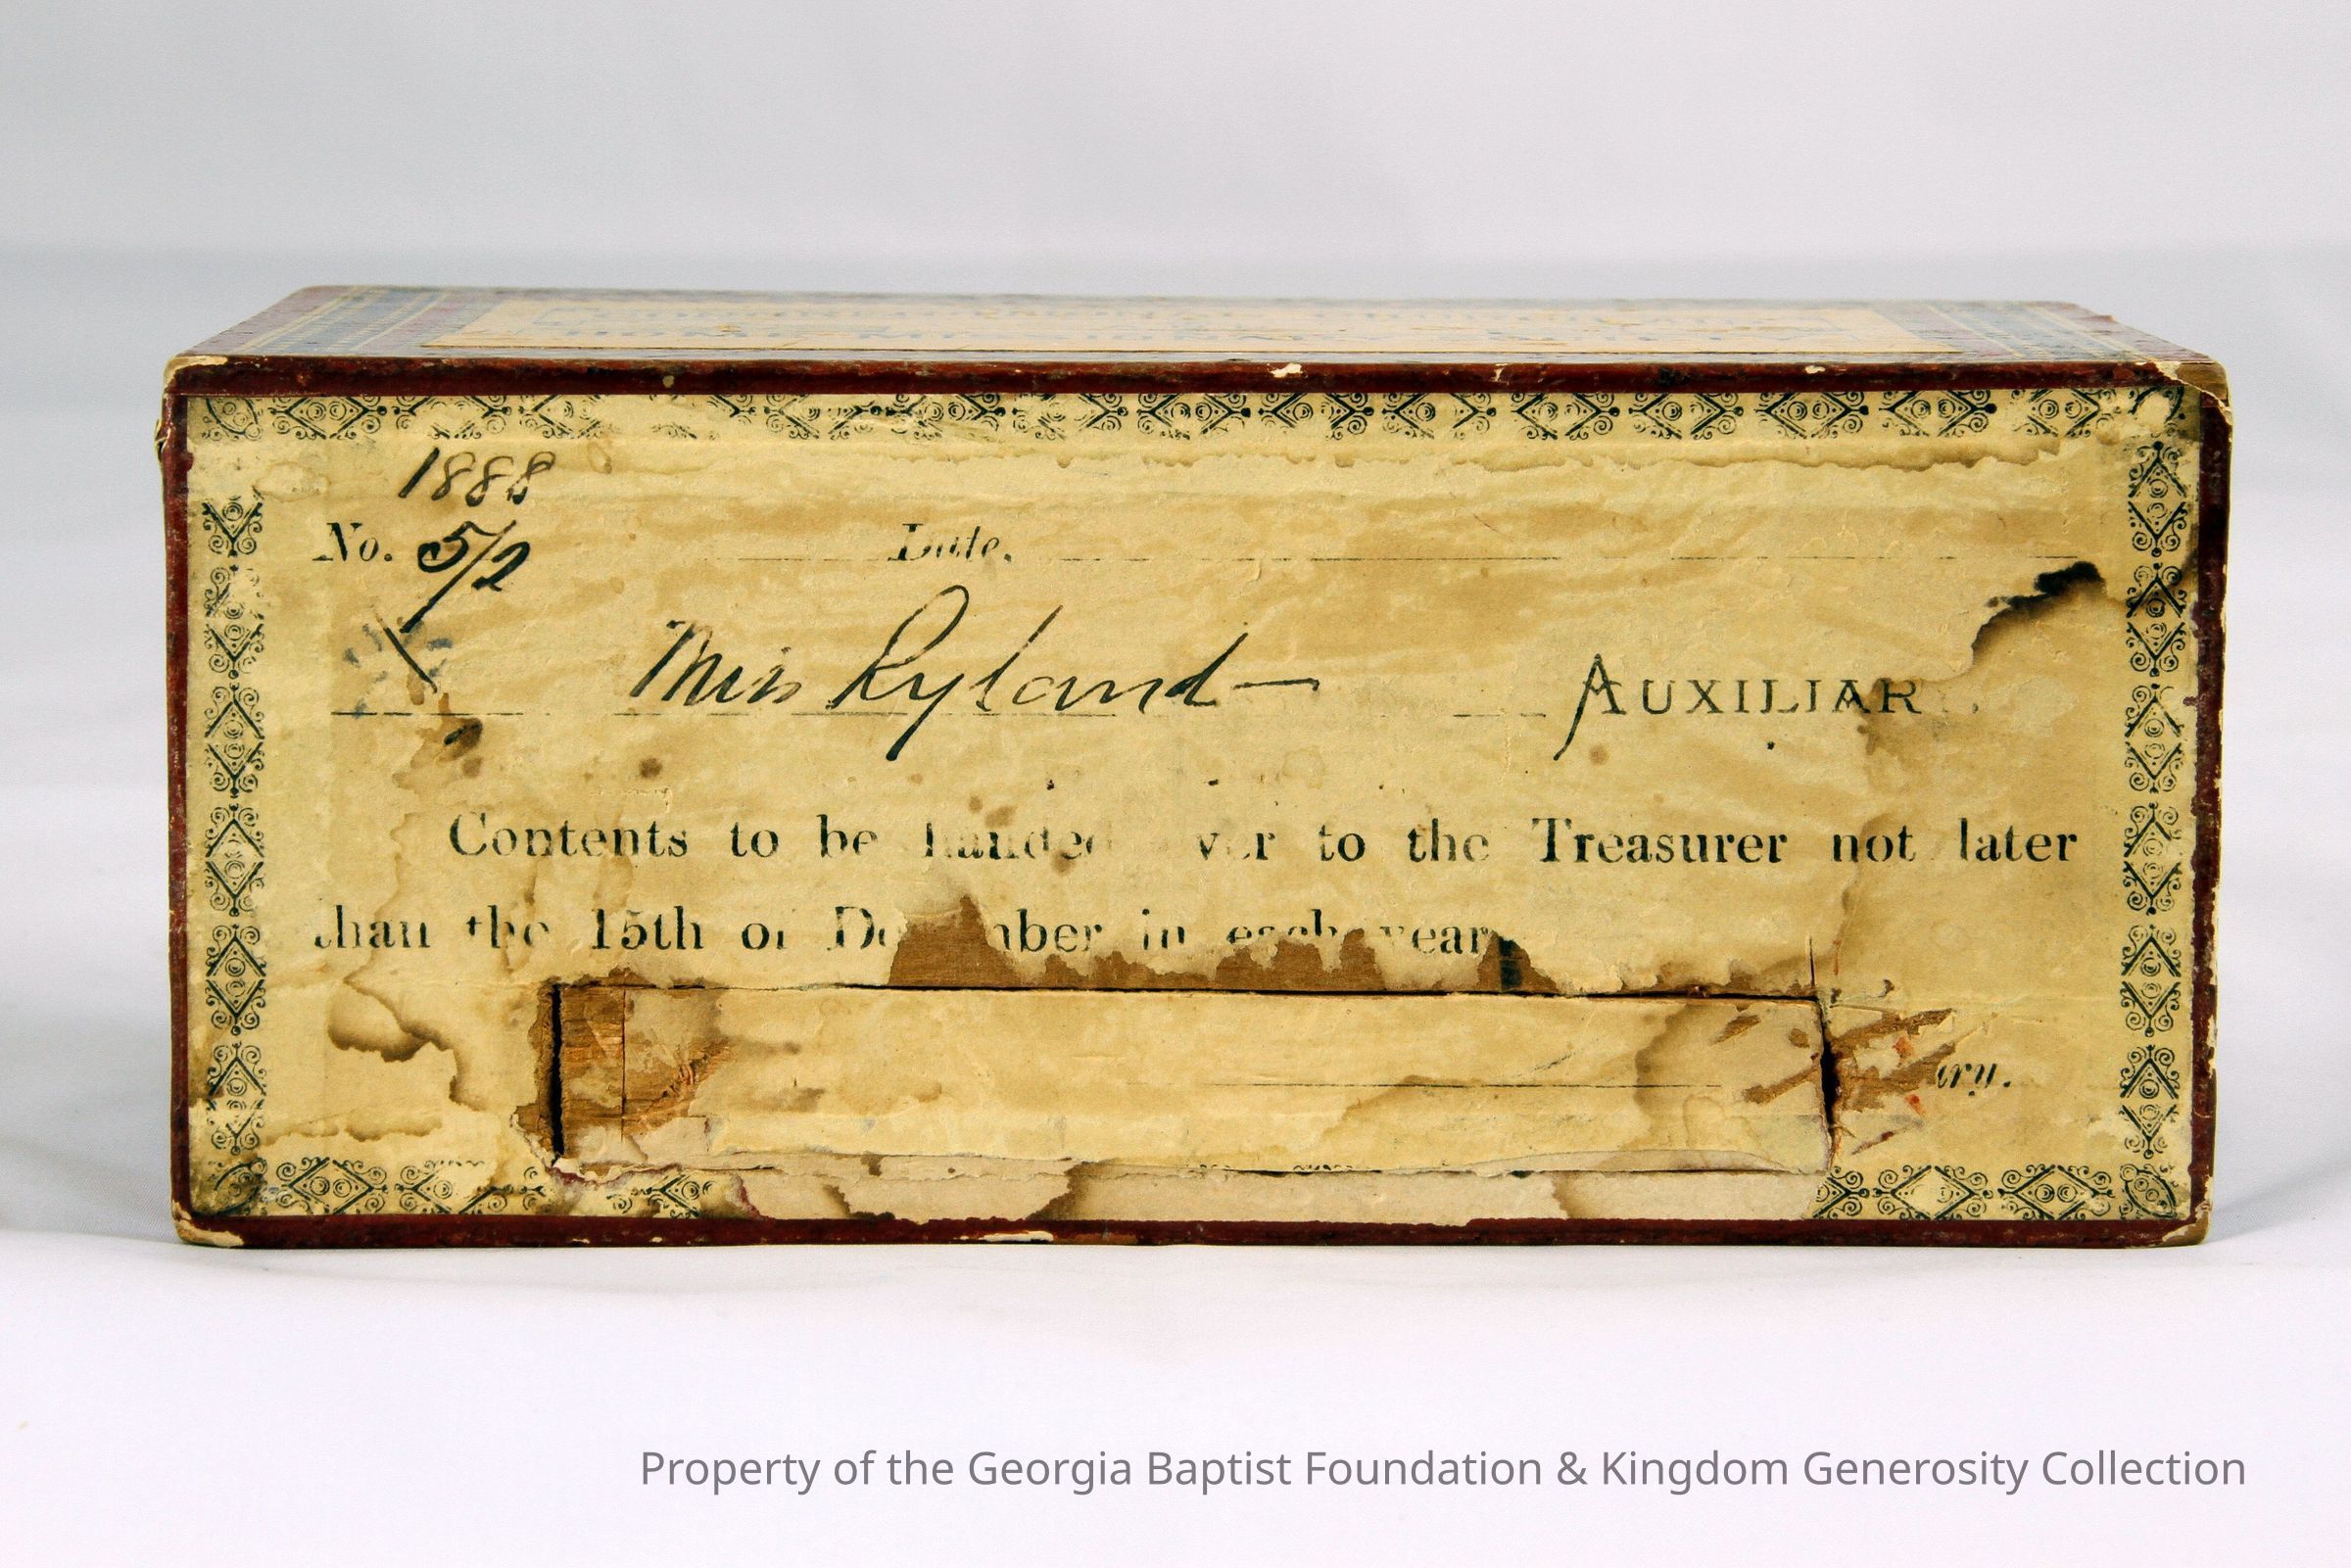 HOME MISSIONARY
1888
No. 5/2 Date.
Miss Ryland— AUXILIAR
Contents to be handed ver to the Treasurer not later
than the 15th of De mber in each year
ary.
Property of the Georgia Baptist Foundation & Kingdom Generosity Collection